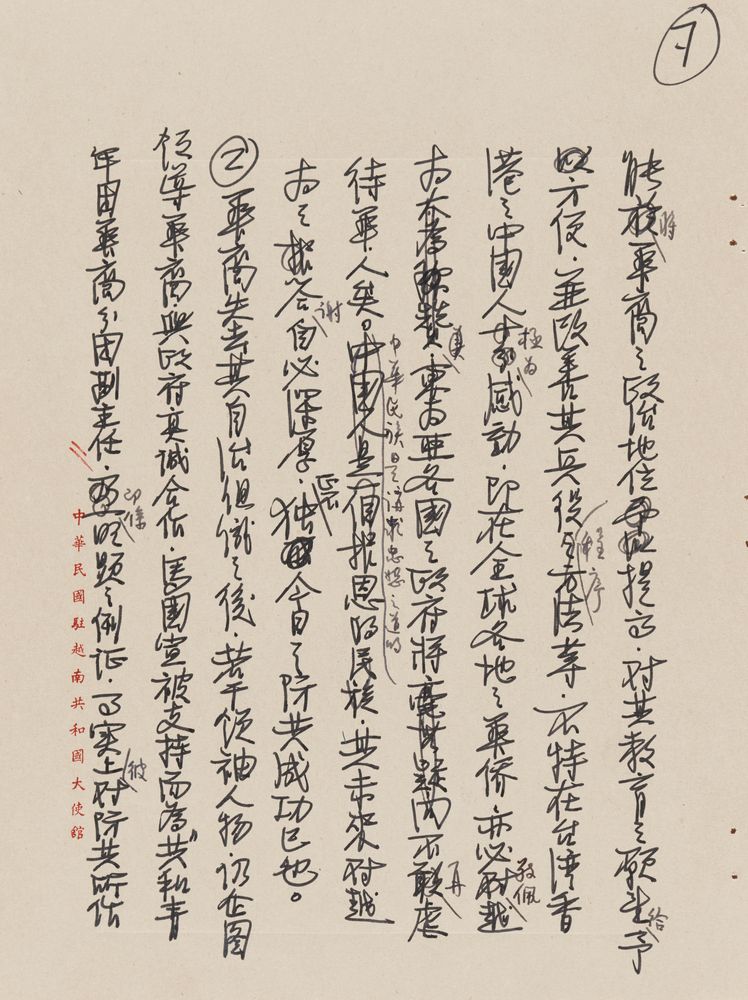 7
能將華商之政治地位提高，對其教育之願望給予
方便，並改善其兵役程序方法等，不特在台灣香
港之中國人極為感動，即在全球各地之華僑亦必敬佩越
南 東南亞各國之政府將 不敢再虐
待華人矣。中華民族是講求忠恕之道的 是一個報恩的民族，其未來對越
南之報答自必深厚，獨今日之防共成功已也。
② 華商失去其自治組織之後，若干領袖人物仍企圖
領導華商與政府真誠合作，馬國宣被支持而為共和青
年團華商分團副主任，即係明顯之例証，事實上彼對防共所作
中華民國駐越南共和國大使館